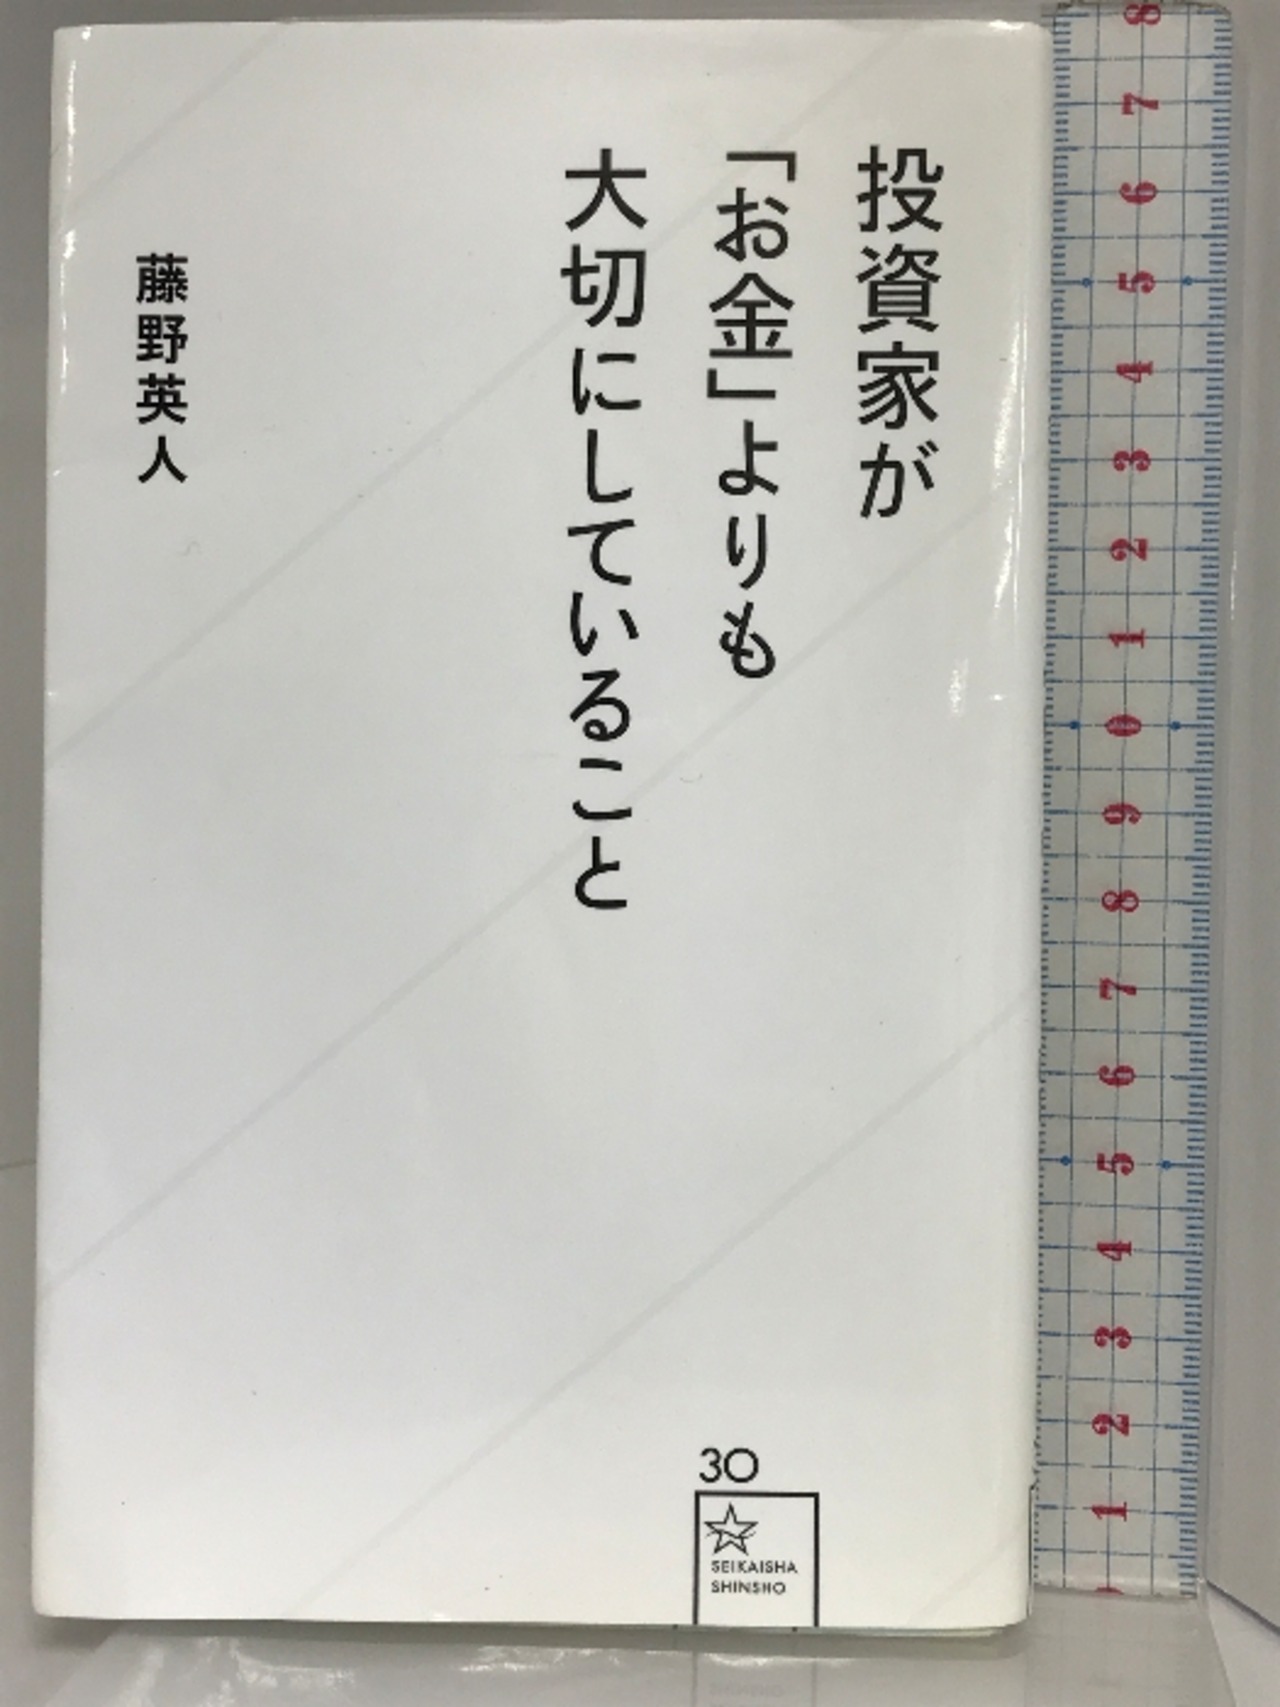 投資家が
「お金」よりも
大切にしていること
藤野英人
30
SEIKAISHA
SHINSHO
8
7
6
5
4
3
2
1
0
9
8
7
6
5
4
3
2
1